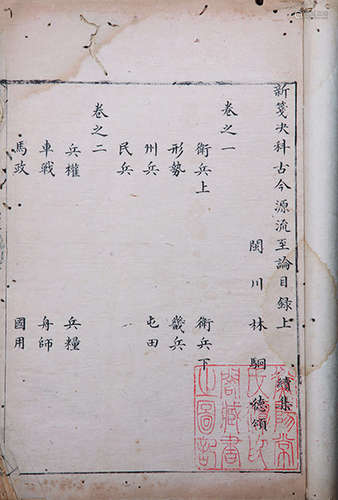 新箋决科古今源流至論目錄上　續集
閩川林駉德頌
卷之一
衛兵上　衛兵下
形勢　畿兵
州兵　屯田
民兵
卷之二
兵權　兵糧
車戰　舟師
馬政　國用
衡陽常
氏潭印
閣藏書
之圖記